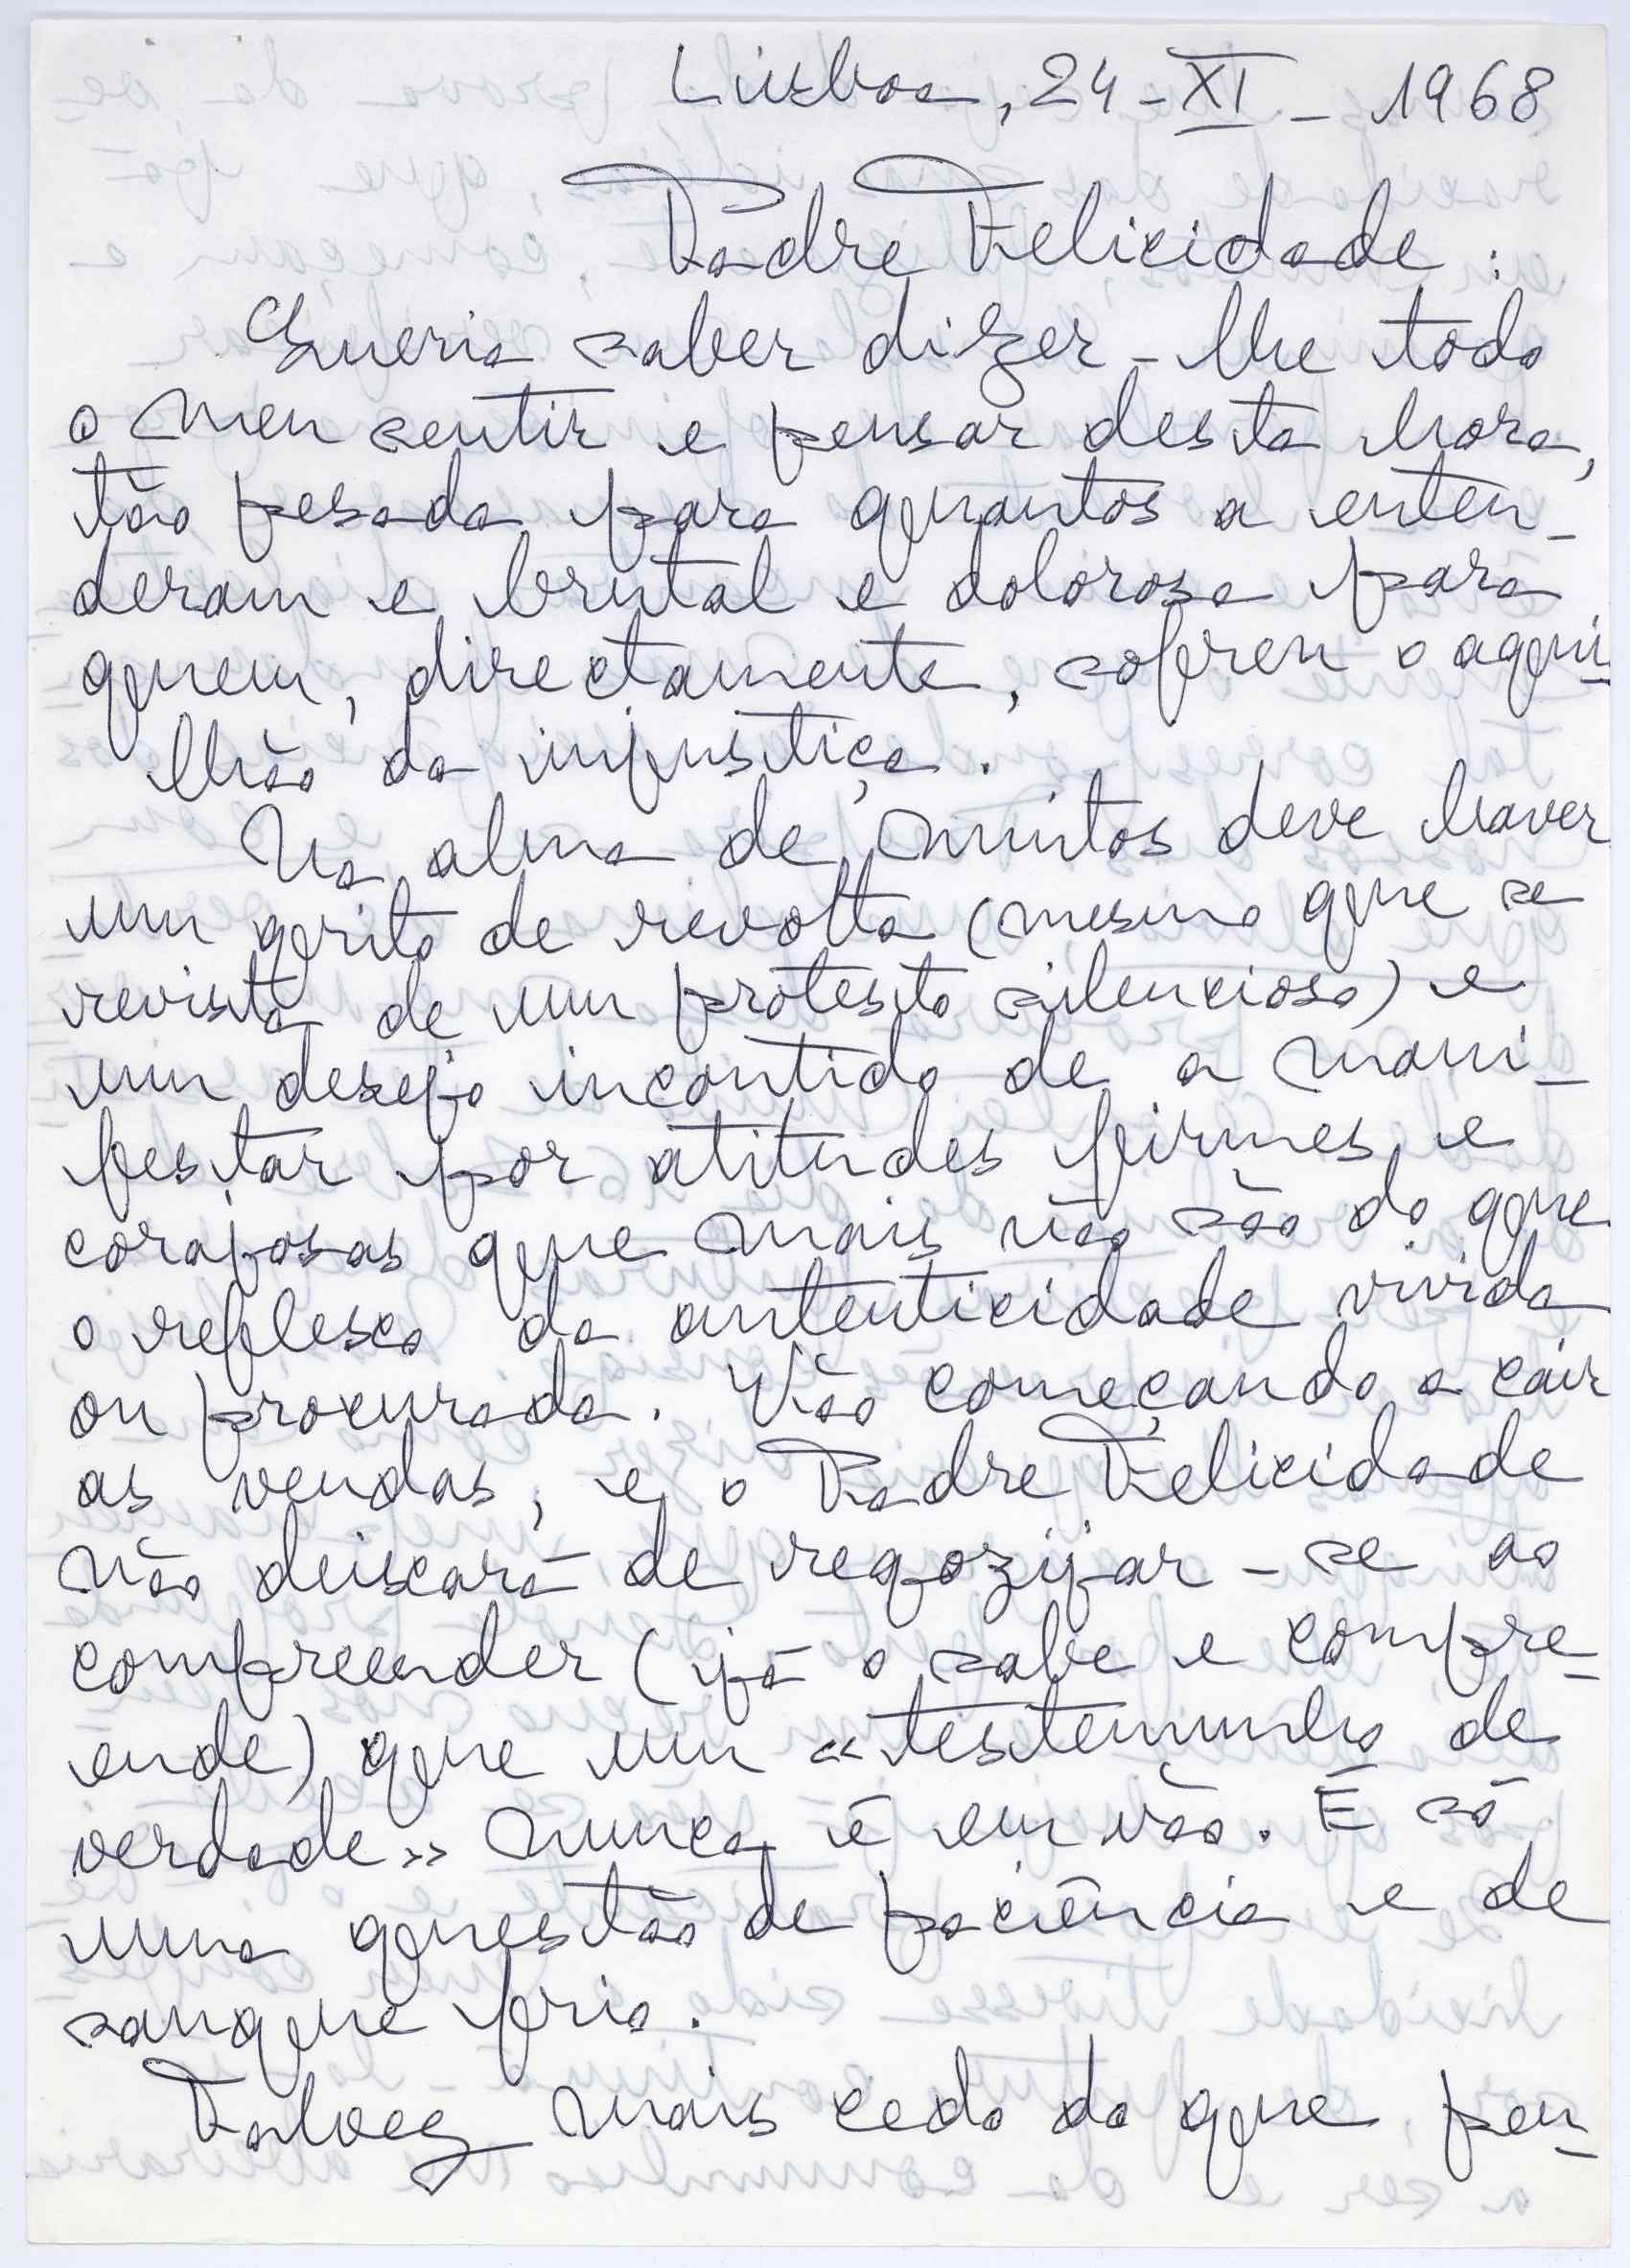 Lisboa, 24-XI-1968
Padre Felicidade:
Queria saber dizer-lhe todo
o meu sentir e pensar desta hora,
tão pesada para quantos a enten-
deram e brutal e dolorosa para
quem, directamente, sofreu o agui-
lhão da injustiça.
Na alma de muitos deve haver
um grito de revolta (mesmo que se
revista de um protesto silencioso) e
um desejo incontido de a mani-
festar por atitudes firmes e
corajosas que mais não são do que
o reflexo da autenticidade vivida
ou procurada. Vão começando a cair
as vendas, e o Padre Felicidade
não deixará de regozijar-se ao
compreender (já o sabe e compre-
ende) que um «testemunho de
verdade» nunca é em vão. É só
uma questão de paciência e de
sangue frio.
Talvez mais cedo do que pen-